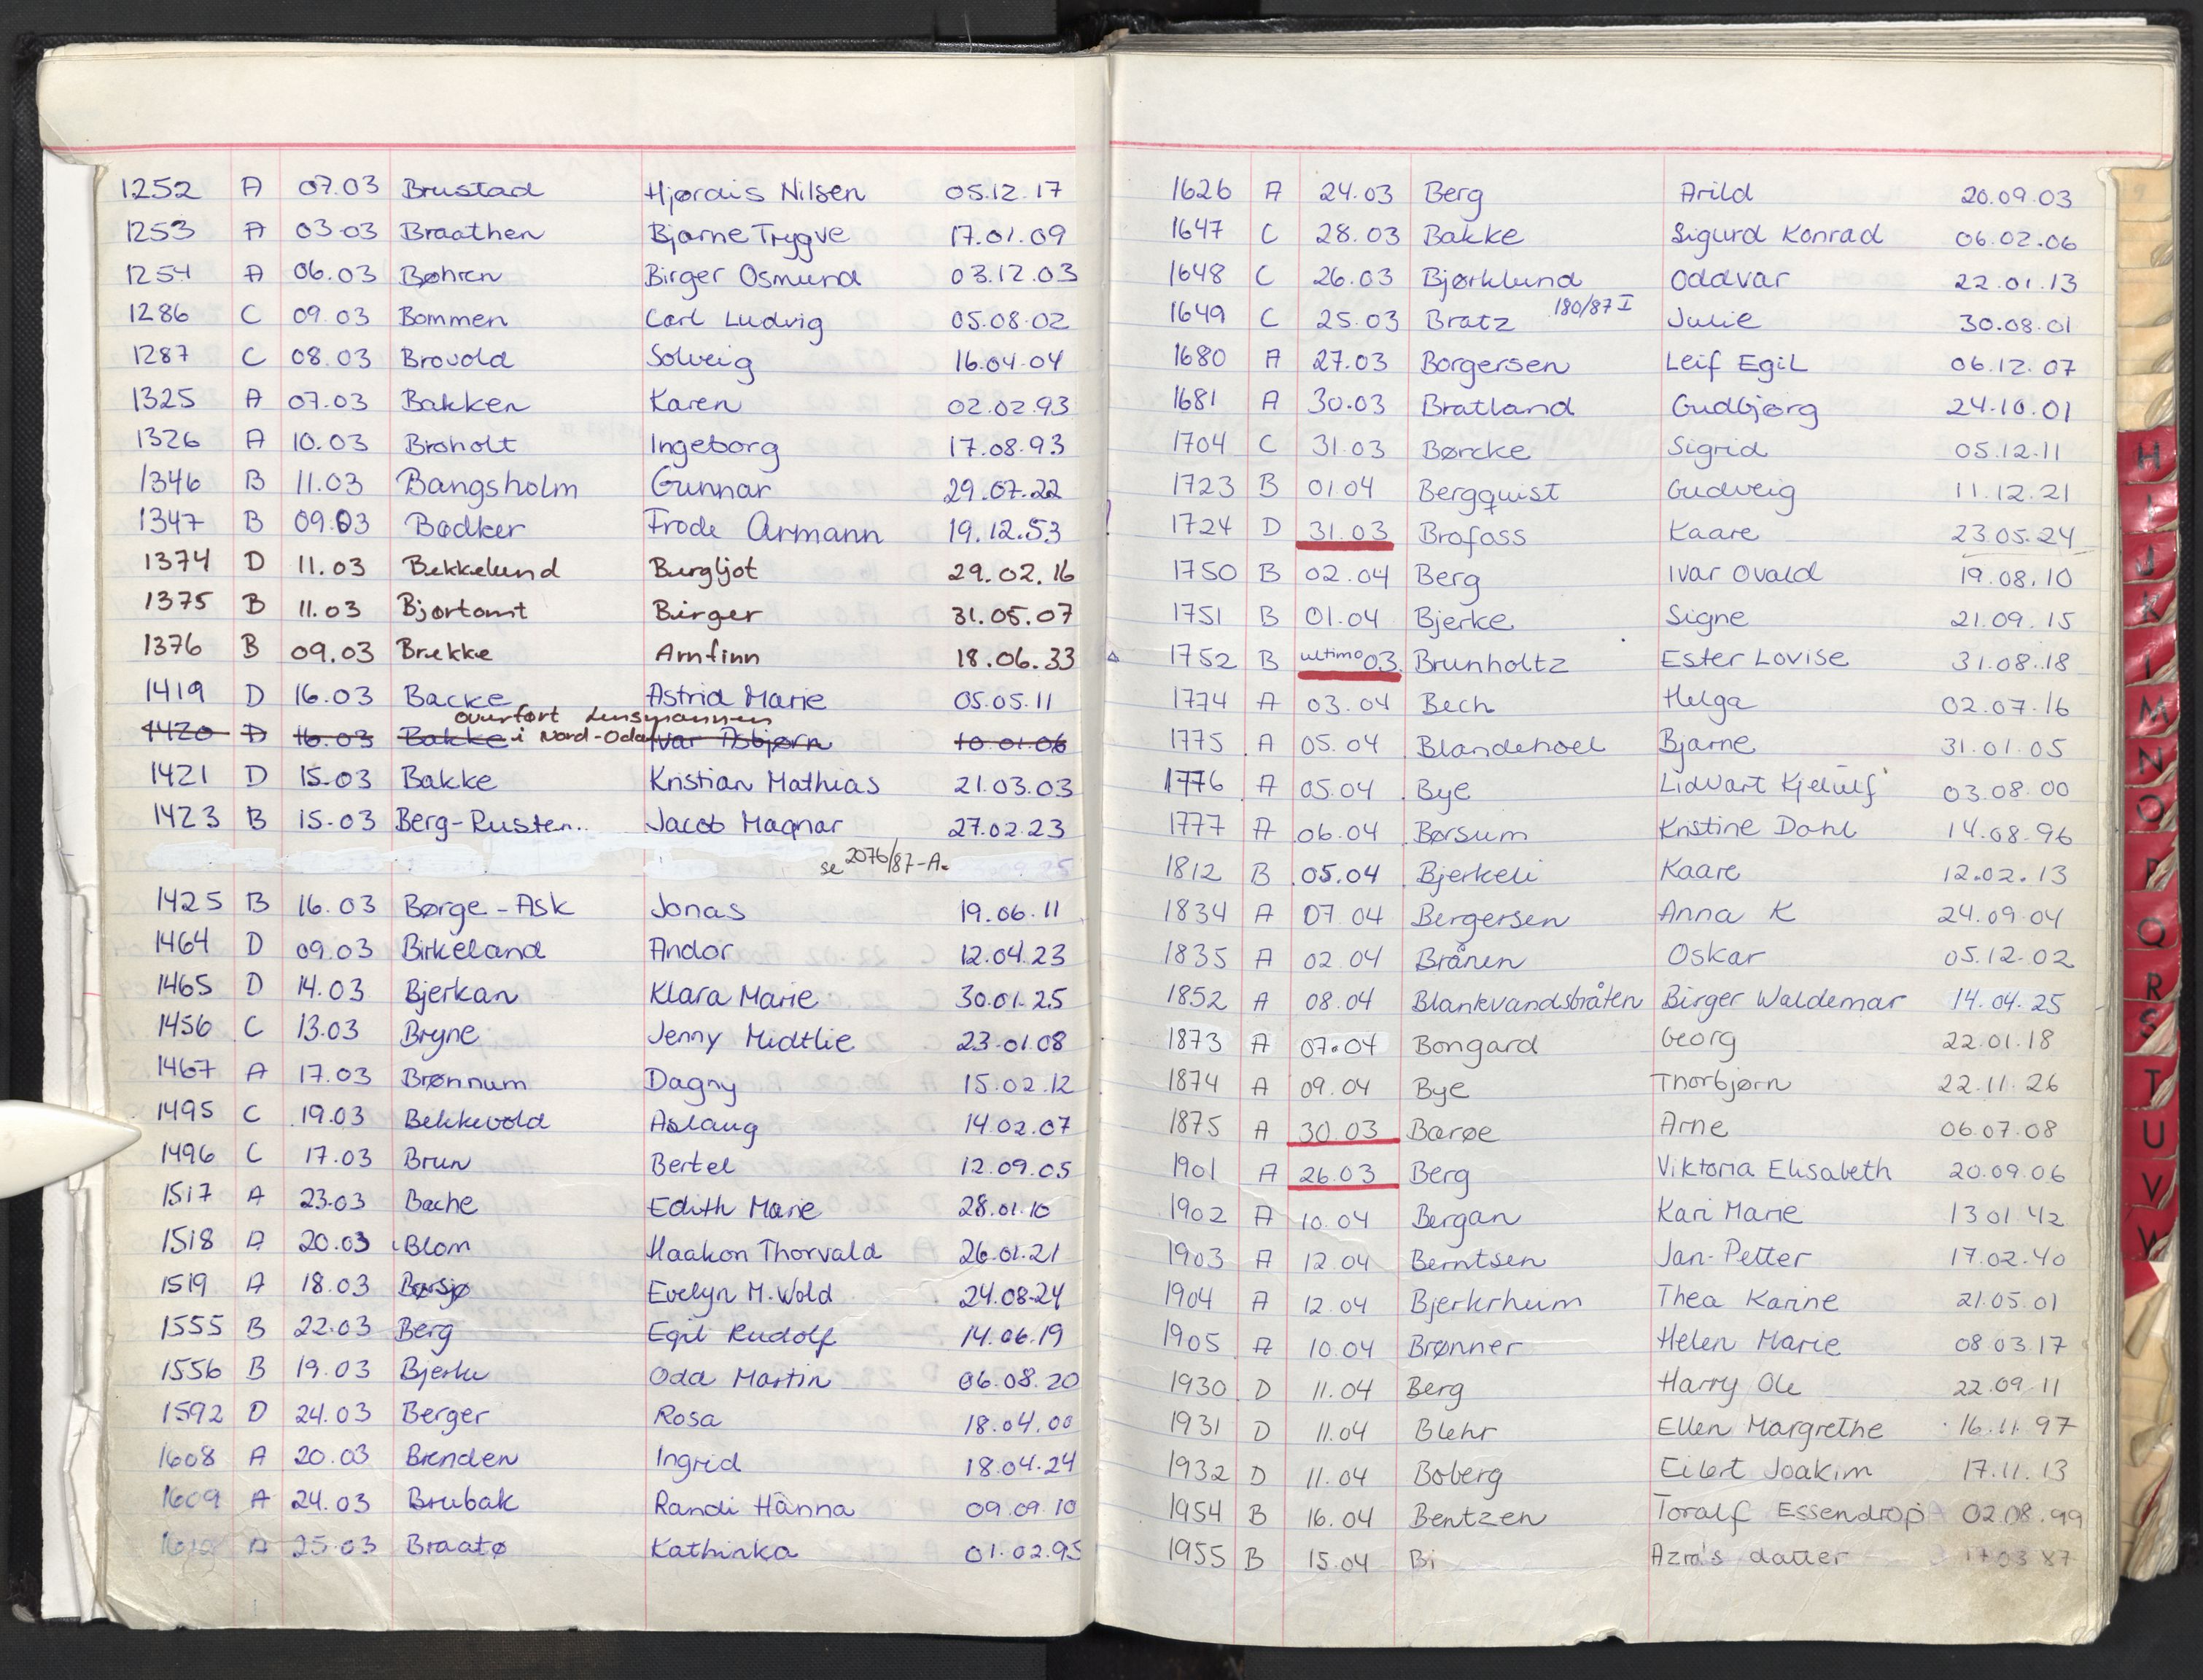 1252 A 07.03 Brustad Hjørdis Nilsen 05.12.17
1253 A 03.03 Braathen Bjarne Trygve 17.01.09
1254 A 06.03 Bøhren Birger Osmund 03.12.03
1286 C 09.03 Bommen Carl Ludvig 05.08.02
1287 C 08.03 Brovold Solveig 16.04.04
1325 A 07.03 Bakken Karen 02.02.93
1326 A 10.03 Broholt Ingeborg 17.08.93
1346 B 11.03 Bangsholm Gunnar 29.07.22
1347 B 09.03 Bødker Frode Armann 19.12.53
1374 D 11.03 Bekkelund Bergljot 29.02.16
1375 B 11.03 Bjørtomt Birger 31.05.07
1376 B 09.03 Brekke Arnfinn 18.06.33
1419 D 16.03 Backe Astrid Marie 05.05.11
overført lensmannen
1420 D 16.03 Bakke i Nord-Odal Ivar Asbjørn 10.01.06
1421 D 15.03 Bakke Kristian Mathias 21.03.03
1423 B 15.03 Berg-Rusten.. Jacob Magnar 27.02.23
se 2076/87-A.
1425 B 16.03 Børge-Ask Jonas 19.06.11
1464 D 09.03 Birkeland Andor 12.04.23
1465 D 14.03 Bjerkan Klara Marie 30.01.25
1456 C 13.03 Bryne Jenny Midtlie 23.01.08
1467 A 17.03 Brønnum Dagny 15.02.12
1495 C 19.03 Bekkevold Aslaug 14.02.07
1496 C 17.03 Brun Bertel 12.09.05
1517 A 23.03 Bache Edith Marie 28.01.10
1518 A 20.03 Blom Haakon Thorvald 26.01.21
1519 A 18.03 Børsjø Evelyn M. Wold 24.08.24
1555 B 22.03 Berg Egil Rudolf 14.06.19
1556 B 19.03 Bjerke Odd Martin 06.08.20
1592 D 24.03 Berger Rosa 18.04.00
1608 A 20.03 Brenden Ingrid 18.04.24
1609 A 24.03 Brubak Randi Hanna 09.09.10
A 25.03 Braatø Kathinka 01.02.95
1626 A 24.03 Berg Arild 20.09.03
1647 C 28.03 Bakke Sigurd Konrad 06.02.06
1648 C 26.03 Bjørklund Oddvar 22.01.13
1649 C 25.03 Bratz 180/87 I Julie 30.08.01
1680 A 27.03 Borgersen Leif Egil 06.12.07
1681 A 30.03 Bratland Gudbjørg 24.10.01
1704 C 31.03 Børcke Sigrid 05.12.11
1723 B 01.04 Bergquist Gudveig 11.12.21
1724 D 31.03 Brofoss Kaare 23.05.24
1750 B 02.04 Berg Ivar Ovald 19.08.10
1751 B 01.04 Bjerke Signe 21.09.15
1752 B ultimo 03. Brunholtz Ester Lovise 31.08.18
1774 A 03.04 Bech Helga 02.07.16
1775 A 05.04 Blandehoel Bjarne 31.01.05
1776 A 05.04 Bye Lidvart Kjelulf 03.08.00
1777 A 06.04 Børsum Kristine Dahl 14.08.96
1812 B 05.04 Bjerkeli Kaare 12.02.13
1834 A 07.04 Bergersen Anna K 24.09.04
1835 A 02.04 Brånen Oskar 05.12.02
1852 A 08.04 Blankvandsbråten Birger Waldemar 14.04.25
1873 A 07.04 Bongard Georg 22.01.18
1874 A 09.04 Bye Thorbjørn 22.11.26
1875 A 30.03 Barøe Arne 06.07.08
1901 A 26.03 Berg Viktoria Elisabeth 20.09.06
1902 A 10.04 Bergan Kari Marie 13.01.42
1903 A 12.04 Berntsen Jan-Petter 17.02.40
1904 A 12.04 Bjerkrheim Thea Karine 21.05.01
1905 A 10.04 Brønner Helen Marie 08.03.17
1930 D 11.04 Berg Harry Ole 22.09.11
1931 D 11.04 Blehr Ellen Margrethe 16.11.97
1932 D 11.04 Boberg Eilert Joakim 17.11.13
1954 B 16.04 Bentzen Toralf Essendrop 02.08.99
1955 B 15.04 Bi Azra's datter 17.03.87
H
I
J
K
L
M
N
O
P
Q
R
S
T
U
V
W